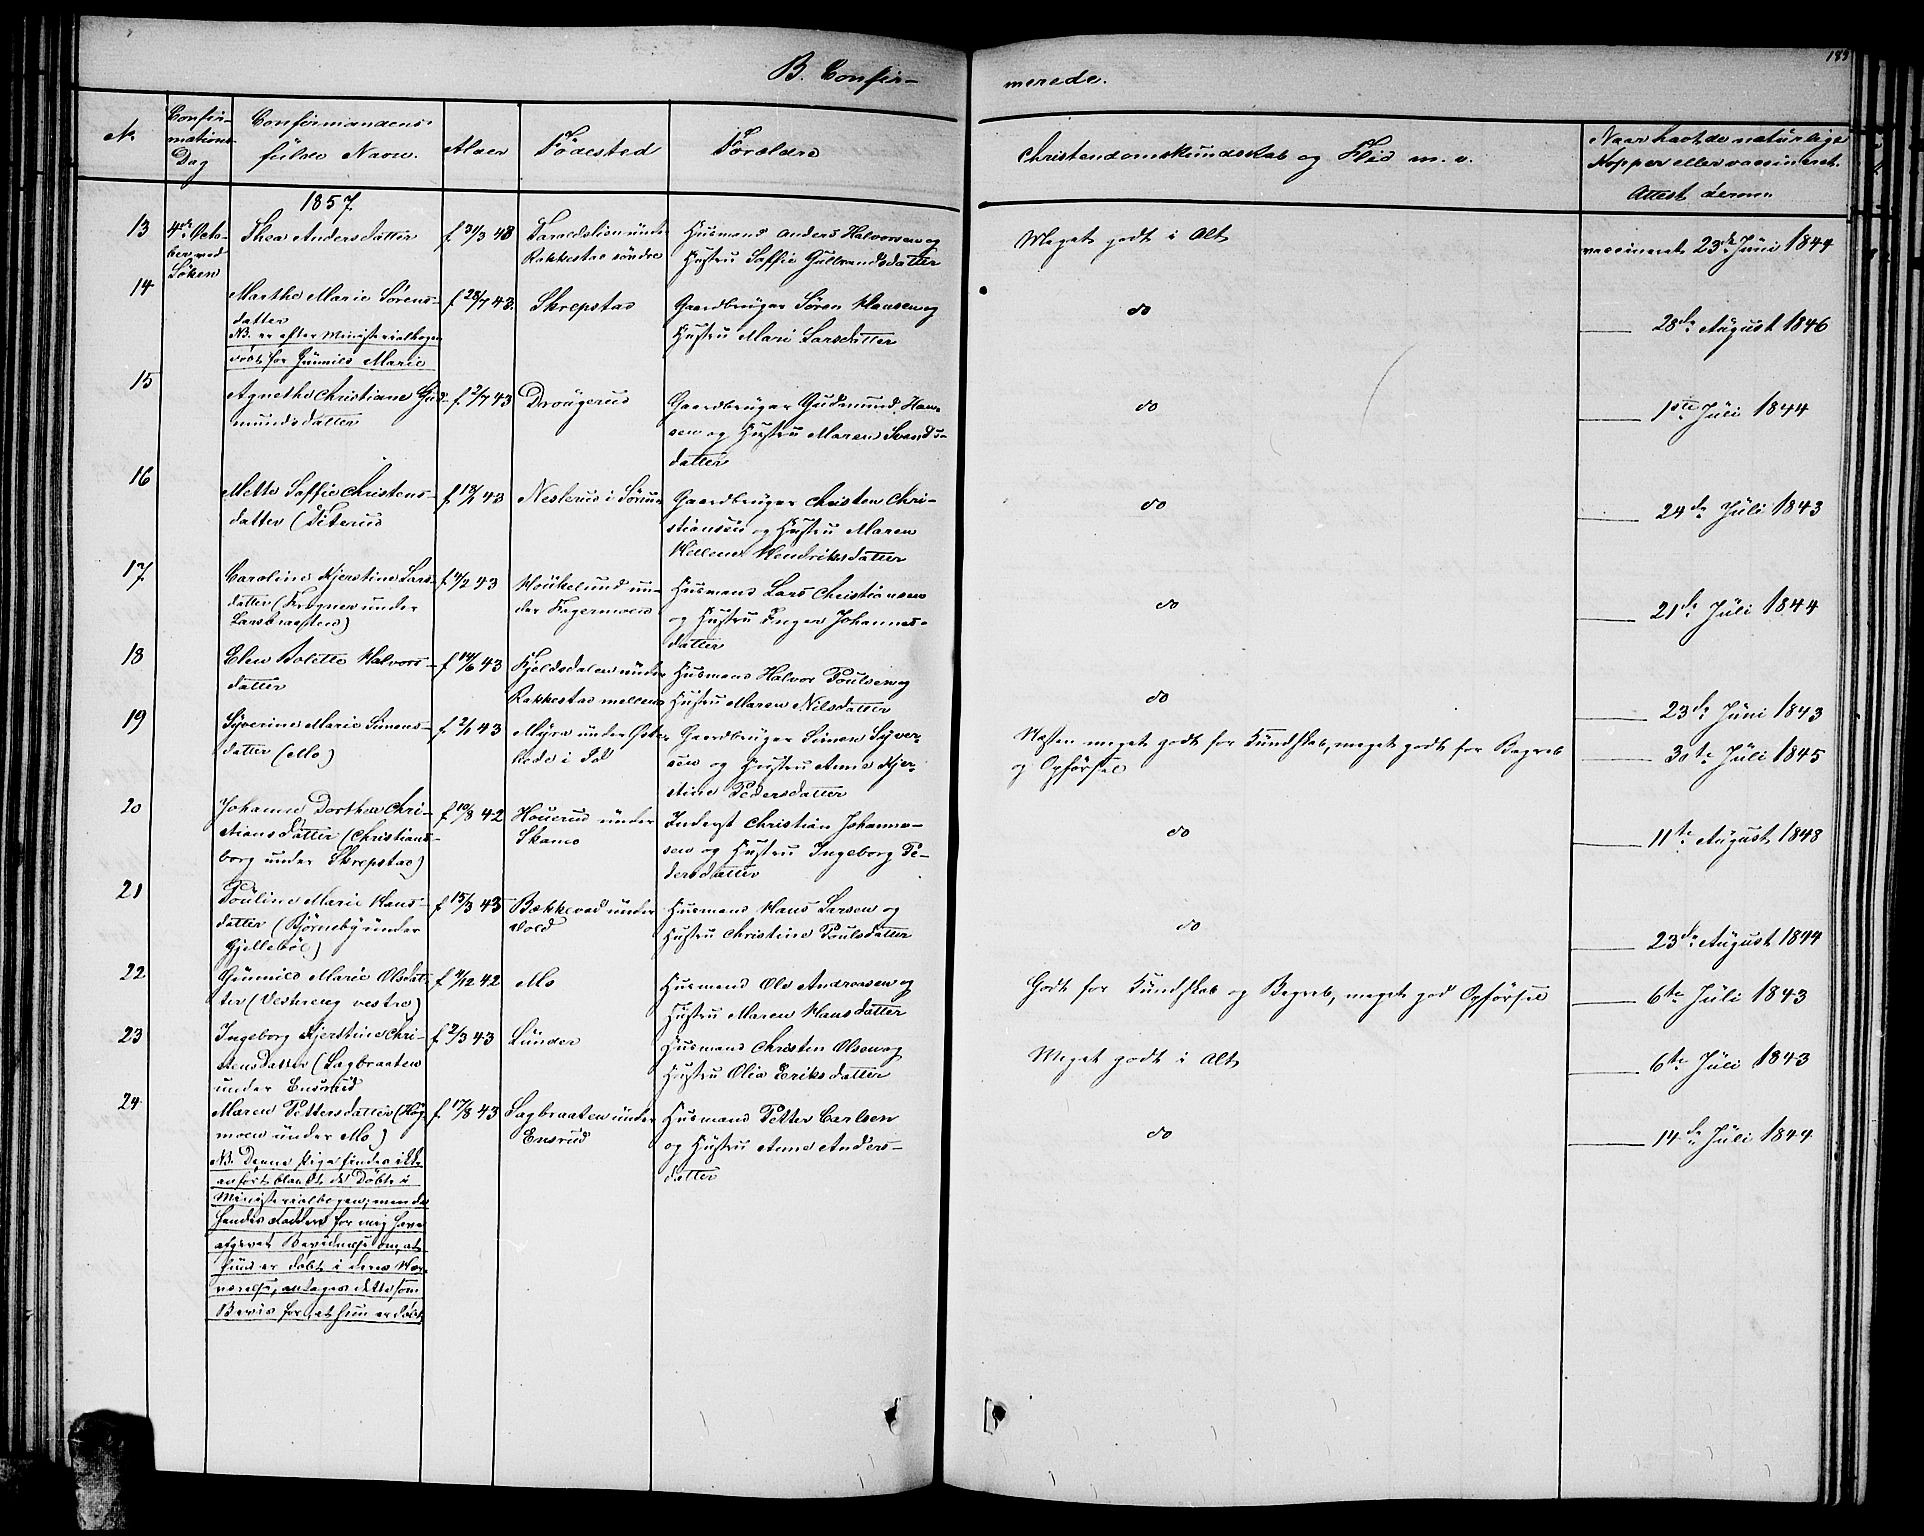 183
B. Confir-
merede.
No
Confir-
mations
Dag
Confirmandens
fulde Navn.
Alder
Fødested
Forældre
Christendomskundskab og Flid m. v.
Naar havt de naturlige
Kopper eller vaccineret.
Attest derom.
1857
13
4de Octo-
ber ved
Søken
Thea Andersdatter
f 31/3 43
under
Rakkestad søndre
Husmand Anders Halvorsen og
Hustru Saffie Gulbrandsdatter
Meget godt i Alt
vaccineret 23de Juni 1844
14
Marthe Marie Sørens-
datter
NB. er efter Ministerialbogen
døbt for Gunnild Marie
f 28/7 43.
Skrepstad
Gaardbruger Søren Hansen og
Hustru Mari Larsdatter
do
28de August 1846
15
Agnethe Christiane Gud-
mundsdatter
f. 2/7 43
Draugerud
Gaardbruger Gudmund Han-
sen og Hustru Maren Svends-
datter
do
1ste Juli 1844
16
Mette Saffie Christens-
datter (Viterud
f 18/1 43
Nesterud i Sørum
Gaardbruger Christen Chri-
stianssen og Hustru Maren
Hellene Hendriksdatter
do
24de Juli 1843
17
Caroline Kjerstine Lars-
datter (Krogner under
Larsbraaten)
f 4/2 43
Houkelund un-
der Fagermoen
Husmand Lars Christiansen
og Hustru Inger Johannes-
datter
do
21de Juli 1844
18
Elen Bolette Halvors-
datter
f 14/6 43
Kjeldsdalen under
Rakkestad mellem
Husmand Halvor Poulsen og
Hustru Maren Nilsdatter
do
23de Juni 1843
19
Syverine Marie Simens-
datter (Mo)
f 2/1 43
Myra under
i Id
Gaardbruger Simen Syver-
sen og Hustru Anne Kjer-
stine Pedersdatter
Næsten meget godt for Kundskab, meget godt for Begreb
og Opførsel
30te Juli 1845
20
Johanne Dorthea Chri-
stiansdatter (Christians-
borg under Skrepstad)
f 10/8 42
Houerud under
Skamo
Inderst Christian Johanne-
sen og Hustru Ingeborg Pe-
dersdatter
do
11te August 1848
21
Pouline Marie Hans-
datter (Bjørneby under
Gjellebøl)
f 15/3 43
Bækkevad under
Vold
Husmand Hans Larsen og
Hustru Christine Poulsdatter
do
23de August 1844
22
Gunnild Marie Olsdat-
ter (Vestreng vestre)
f 4/12 42
Mo
Husmand Ole Andreasen og
Hustru Maren Hansdatter
Godt for Kundskab og Begreb, meget god Opførsel
6te Juli 1843
23
Ingeborg Kjerstine Chri-
stensdatter (Sagbraaten
under Ensrud
f 2/3 43
Lunder
Husmand Christen Olsen og
Hustru Olia Eriksdatter
Meget godt i Alt
6te Juli 1843
24
Maren Pettersdatter (Høg-
moen under Mo)
NB. Denne Pige findes ikke
anført blandt de Døbte i
Ministerialbogen; men da
hendes Faddere for mig have
afgivet Bevidnelse om, at
hun er døbt i deres Nær-
værelse, antages dette som
Bevis for, at hun er døbt
f 17/8 43
Sagbraaten under
Ensrud
Husmand Petter Carlsen
og Hustru Anne Anders-
datter
do
14de Juli 1844